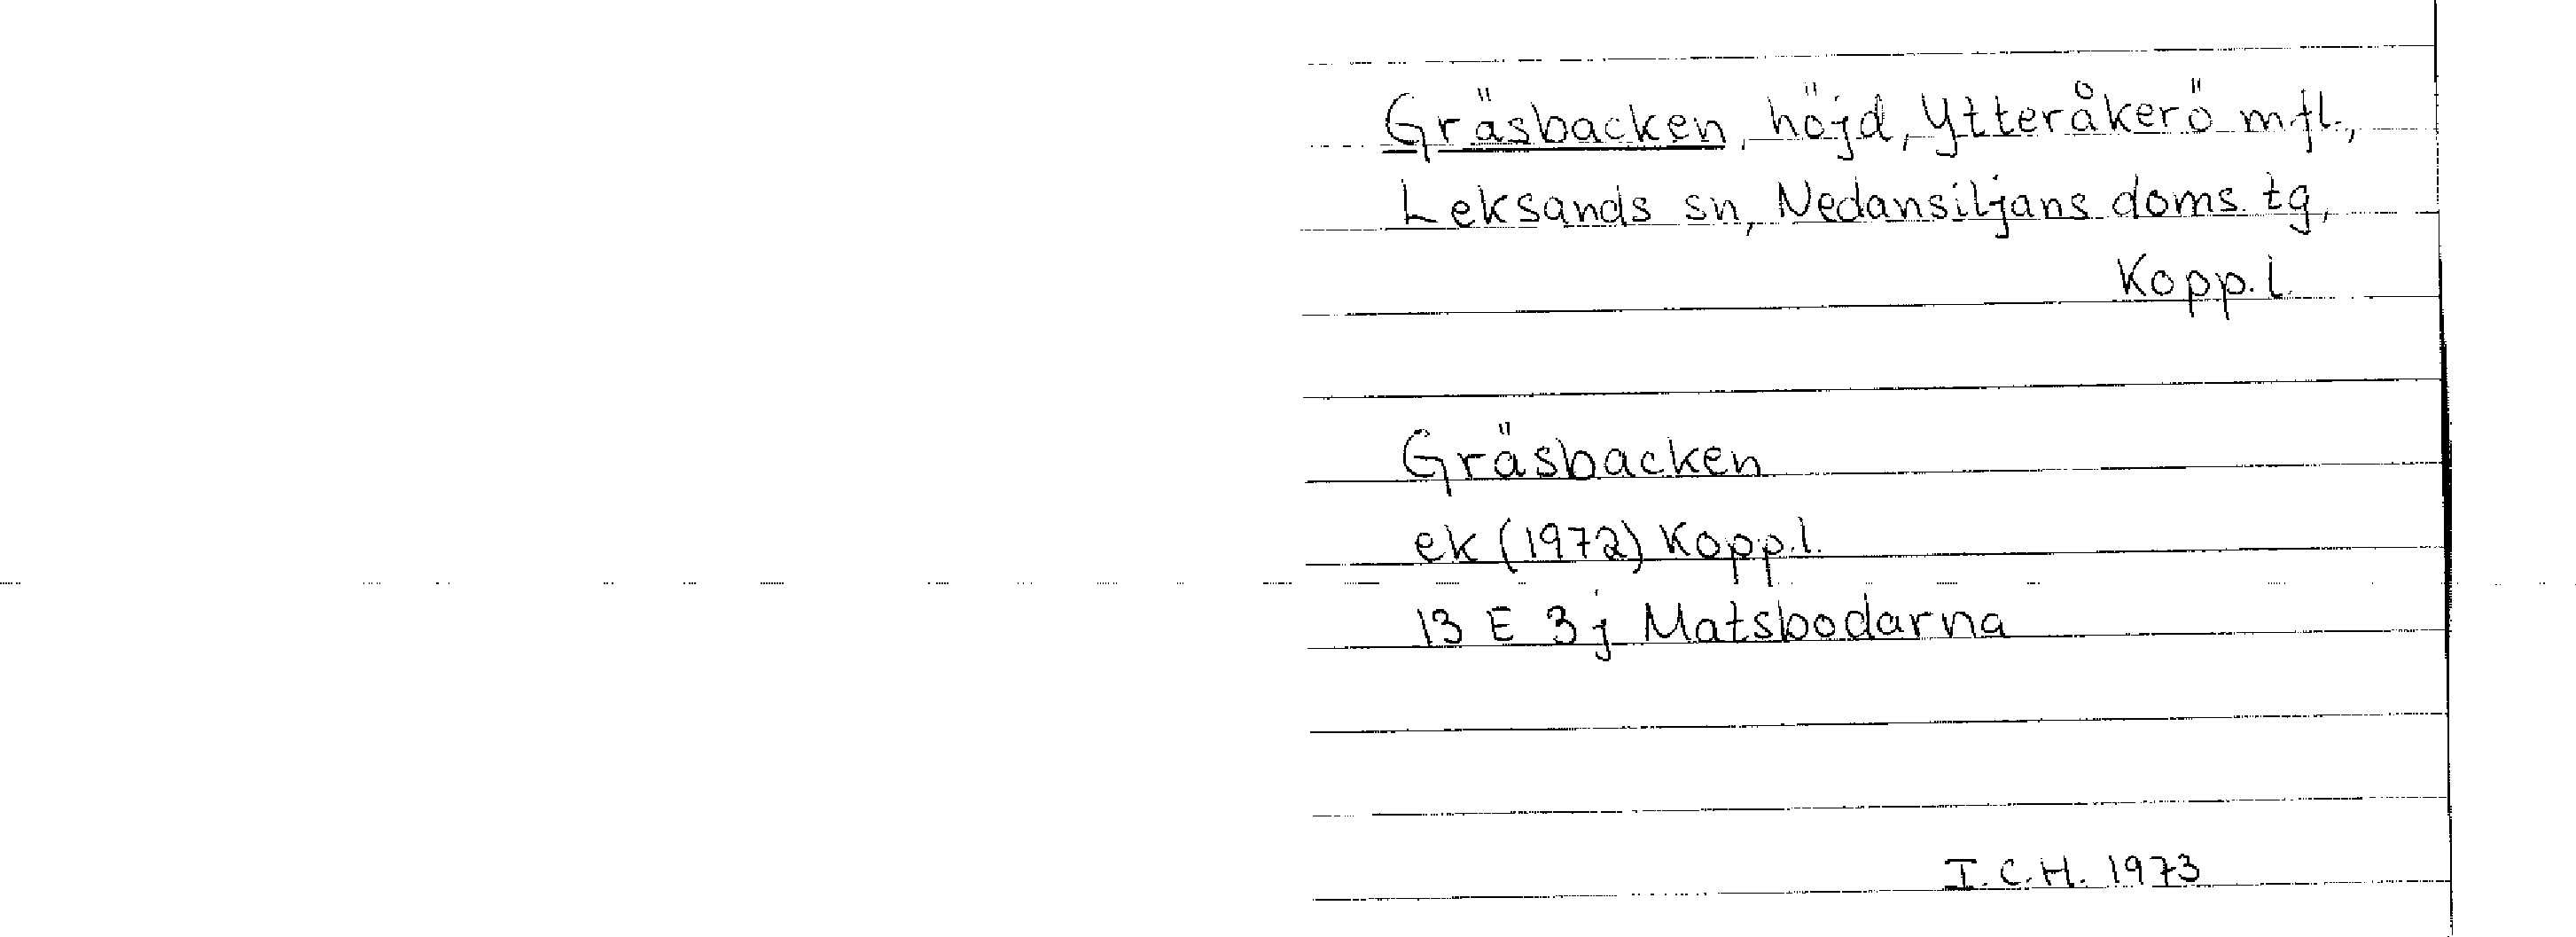 Gräsbacken, höjd, Ytteråkerö mfl.,
Leksands sn, Nedansiljans doms. tg,
Kopp. l.
Gräsbacken
ek (1972) Kopp. l.
13 E 3 j Matsbodarna
I. C. H. 1973